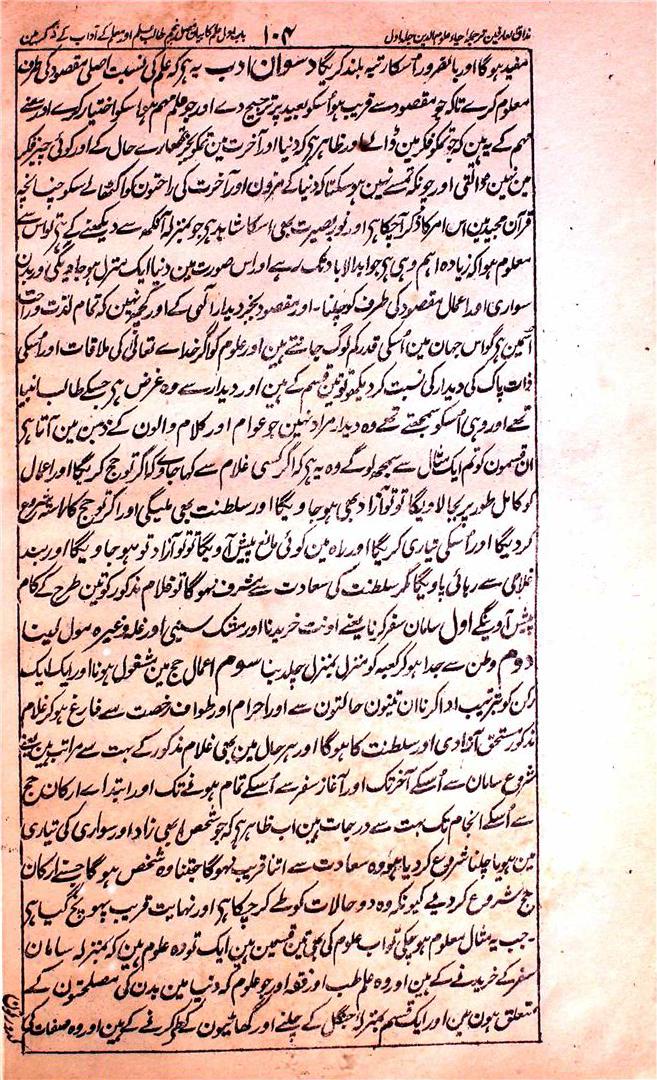 مذاق العارفین ترجمہ احیاء علوم الدین جلد اول ۱۰۴ باب اول علم کا بیان فصل پنجم طالب علم اور معلم کے آداب کے ذکر مین
مفید ہوگا اور بالضرور اسکا رتبہ بلند کریگا دسوان ادب یہ ہی کہ علم کی نسبت اصلی مقصود کی طرف
معلوم کرے تاکہ جو مقصود سے قریب ہو اُسکو بعید پر ترجیح دے اور جو علم مہم ہو اسکو اختیار کرے اور معنے
مہم کے یہ ہین کہ جو تمکو فکر مین ڈالے اور ظاہر ہی کہ دنیا اور آخرت مین تمکو بجز تمھارے حال کے اور کوئی چیز فکر
مین نہین ڈالتی اور چونکہ تمسے نہین ہو سکتا کہ دنیا کے مزون اور آخرت کی راحتون کو اکٹھا لے سکو چنانچہ
قرآن مجید مین اس امر کا ذکر آچکا ہی اور نور بصیرت بھی اسکا شاہد ہی جو بمنزلہ آنکھ سے دیکھنے کے ہی تو اس سے
معلوم ہوا کہ زیادہ اہم وہی ہی جو ابد الاباد تک رہے اور اس صورت مین دنیا ایک منزل ہو جاویگی اور بدن
سواری اور اعمال مقصود کی طرف کو چلنا۔ اور مقصود بجز دیدار الٰہی کے اور کچھ نہین کہ تمام لذت و راحت
اسمین ہی گو اس جہان مین اُسکی قدر کم لوگ جانتے ہین اور علوم کو اگر خداے تعالیٰ کی ملاقات اور اُسکی
ذات پاک کی دیدار کی نسبت کر دیکھو تو تین قسم کے ہین اور دیدار سے وہ غرض ہی جسکے طالب انبیا
تھے اور وہی اُسکو سمجھتے تھے وہ دیدار مراد نہین جو عوام اور کلام والون کے ذہن مین آتا ہی
ان قسمون کو تم ایک مثال سے سمجھ لوگے وہ یہ ہی کہ اگر کسی غلام سے کہا جاوے کہ اگر تو حج کریگا اور اعمال
کو کامل طور پر بجا لاویگا تو تو آزاد بھی ہو جاویگا اور سلطنت بھی ملیگی اور اگر تو حج کا راستہ شروع
کر دیگا اور اُسکی تیاری کریگا اور راہ مین کوئی مانع پیش آویگا تو تو آزاد تو ہو جاویگا اور بند
غلامی سے رہائی پاویگا مگر سلطنت کی سعادت سے مشرف نہوگا تو غلام مذکور کو تین طرح کے کام
پیش آوینگے اول سامان سفر کرنا یعنے اونٹ خریدنا اور مشک سینی اور غلہ وغیرہ مول لینا
دوم وطن سے جدا ہو کر کعبہ کو منزل بمنزل چلدینا سوم اعمال حج مین مشغول ہونا اور ایک ایک
رکن کو بترتیب ادا کرنا ان تینون حالتون سے اور احرام اور طواف رخصت سے فارغ ہو کر غلام
مذکور مستحق آزادی اور سلطنت کا ہوگا اور ہر حال مین بھی غلام مذکور کے بہت سے مراتب ہین یعنے
شروع سامان سے اُسکے آخر تک اور آغاز سفر سے اُسکے تمام ہونے تک اور ابتداے ارکان حج
سے اُسکے انجام تک بہت سے درجات ہین اب ظاہر ہی کہ جو شخص ابھی زاد اور سواری کی تیاری
مین ہو یا چلنا شروع کر دیا ہو وہ سعادت سے اتنا قریب نہوگا جتنا وہ شخص ہوگا جسنے ارکان
حج شروع کر دیے کیونکہ وہ دو حالات کو طے کر چکا ہی اور نہایت قریب پہونچ گیا ہی
۔جب یہ مثال معلوم ہو چکی تو اب علوم کی بھی تین قسمین ہین ایک تو وہ علوم ہین کہ بمنزلہ سامان
سفر کے خریدنے کے ہین اور وہ علم طب اور فقہ اور جو علوم کہ دنیا مین بدن کی مصلحتون کے
متعلق ہون ہین اور ایک قسم بمنزلہ جنگل کے چلنے اور گھاٹیون کے طے کرنے کے ہین اور وہ صفات کی